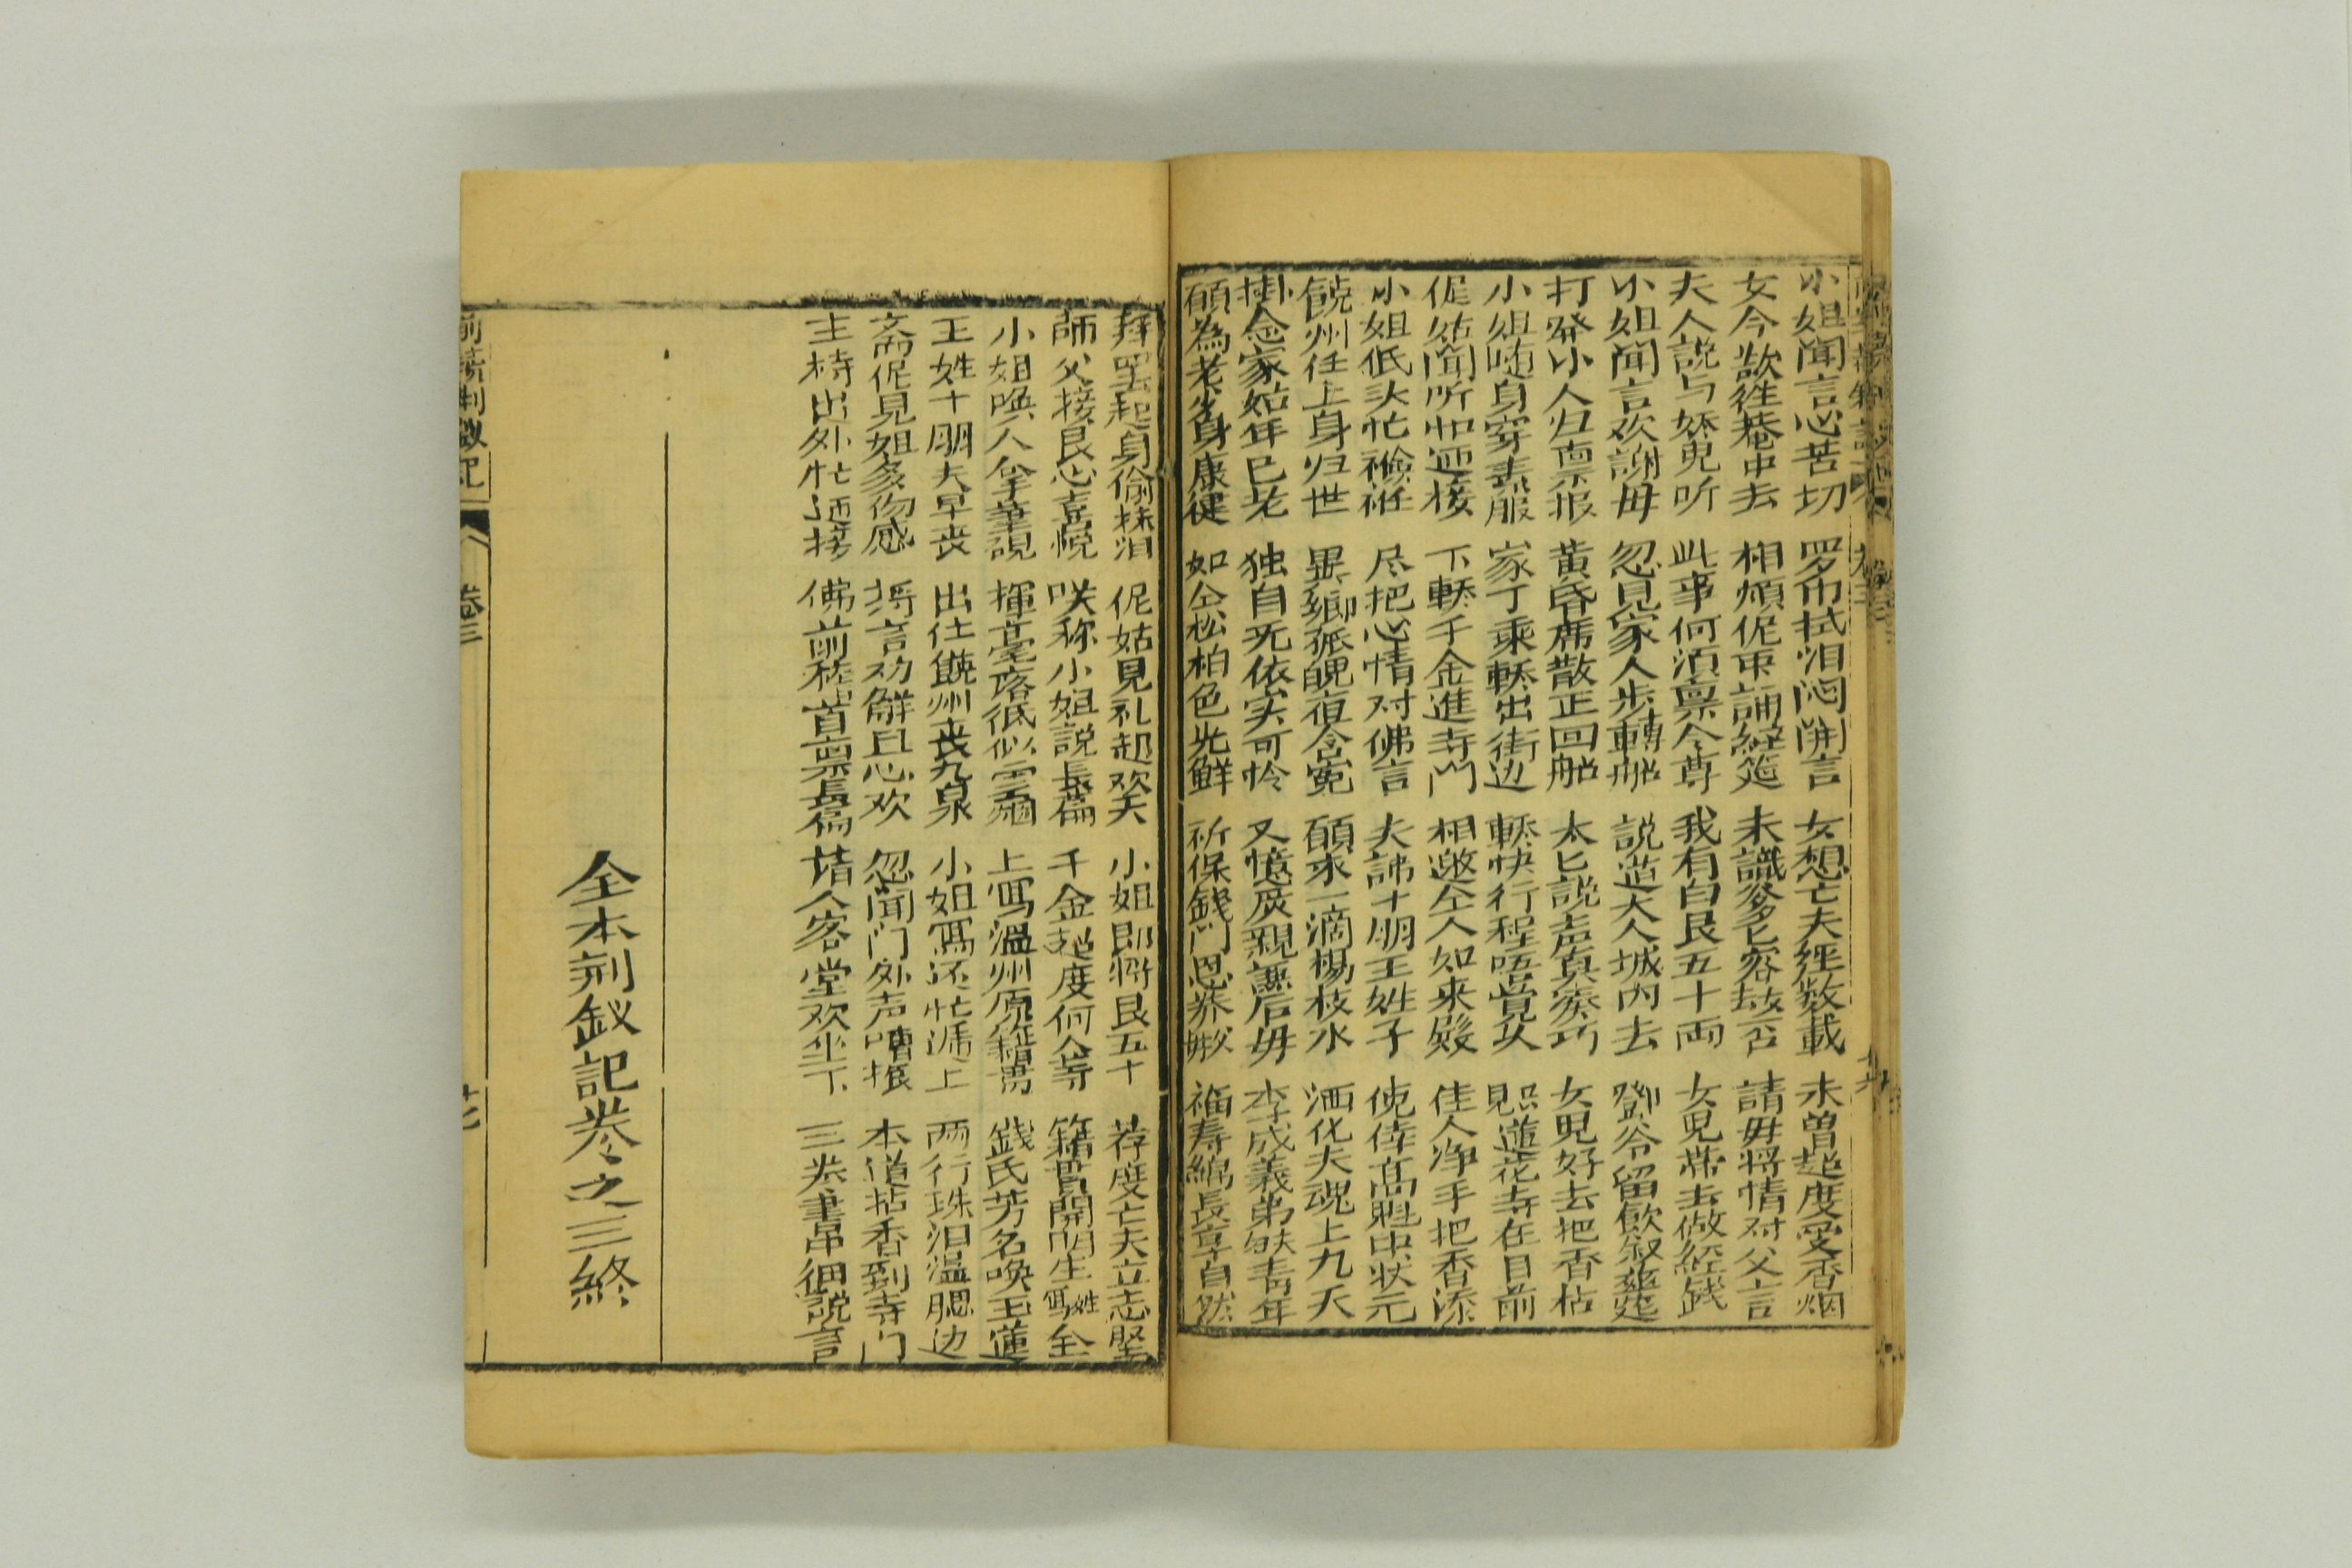 小姐聞言心苦切 罗巾拭泪悶開言 女想亡夫經数載 未曾超度受香烟
女今歎徃菴中去 相煩伲柬誦經筵 未識爹乜容故否 請毋將情对父言
夫人說与嬌児听 此事何須禀令尊 我有白艮五十両 女児帶去做經錢
小姐聞言欢謝毋 忽見家人步轉船 說道大人城内去 鄧爷留飲叙華筵
打發小人归禀报 黄昏席散正回船 太乜説声真凑巧 女児好去把香拈
小姐随身穿素服 家丁乘轎出街边 轎快行程唔觉乆 見蓮花寺在目前
伲姑聞听忙迎接 下轎千金進寺門 相邀仝人如来殿 佳人净手把香添
小姐低头忙襝袵 尽把心情对佛言 夫諱十朋王姓子 使侓高魁中状元
饒州任上身归世 異鄉孤魄宿含冤 願求一滴楊枝水 洒化夫魂上九天
掛念家姑年已老 独自无依实可怜 又憶灰親議后毋 李成義弟缺青年
願為老少身康健 如仝松柏色光鮮 祈保錢門恩养 福寿綿長享自然
拜罢起身偷抹泪 伲姑見礼起欢天 小姐即將艮五十 荐度亡夫立志堅
師父接艮心喜悅 咲称小姐說長篇 千金超度何人等 籍貫開明生姓写全
小姐喚人拿筆硯 揮毫落低似雲烟 上寫溫州原籍貫 錢氏芳名喚玉蓮
王姓十朋夫早丧 出仕饒州丧九泉 小姐寫还忙逓上 両行珠泪溫腮边
斎伲見姐多伤感 將言劝解且心欢 忽聞门外声嘈振 本道拈香到寺门
主持出外忙迎接 佛前稽首禀長篇 請人客堂欢坐下 三卷書中細說言
全本荆釵記卷之三終
前荆釵記 卷三